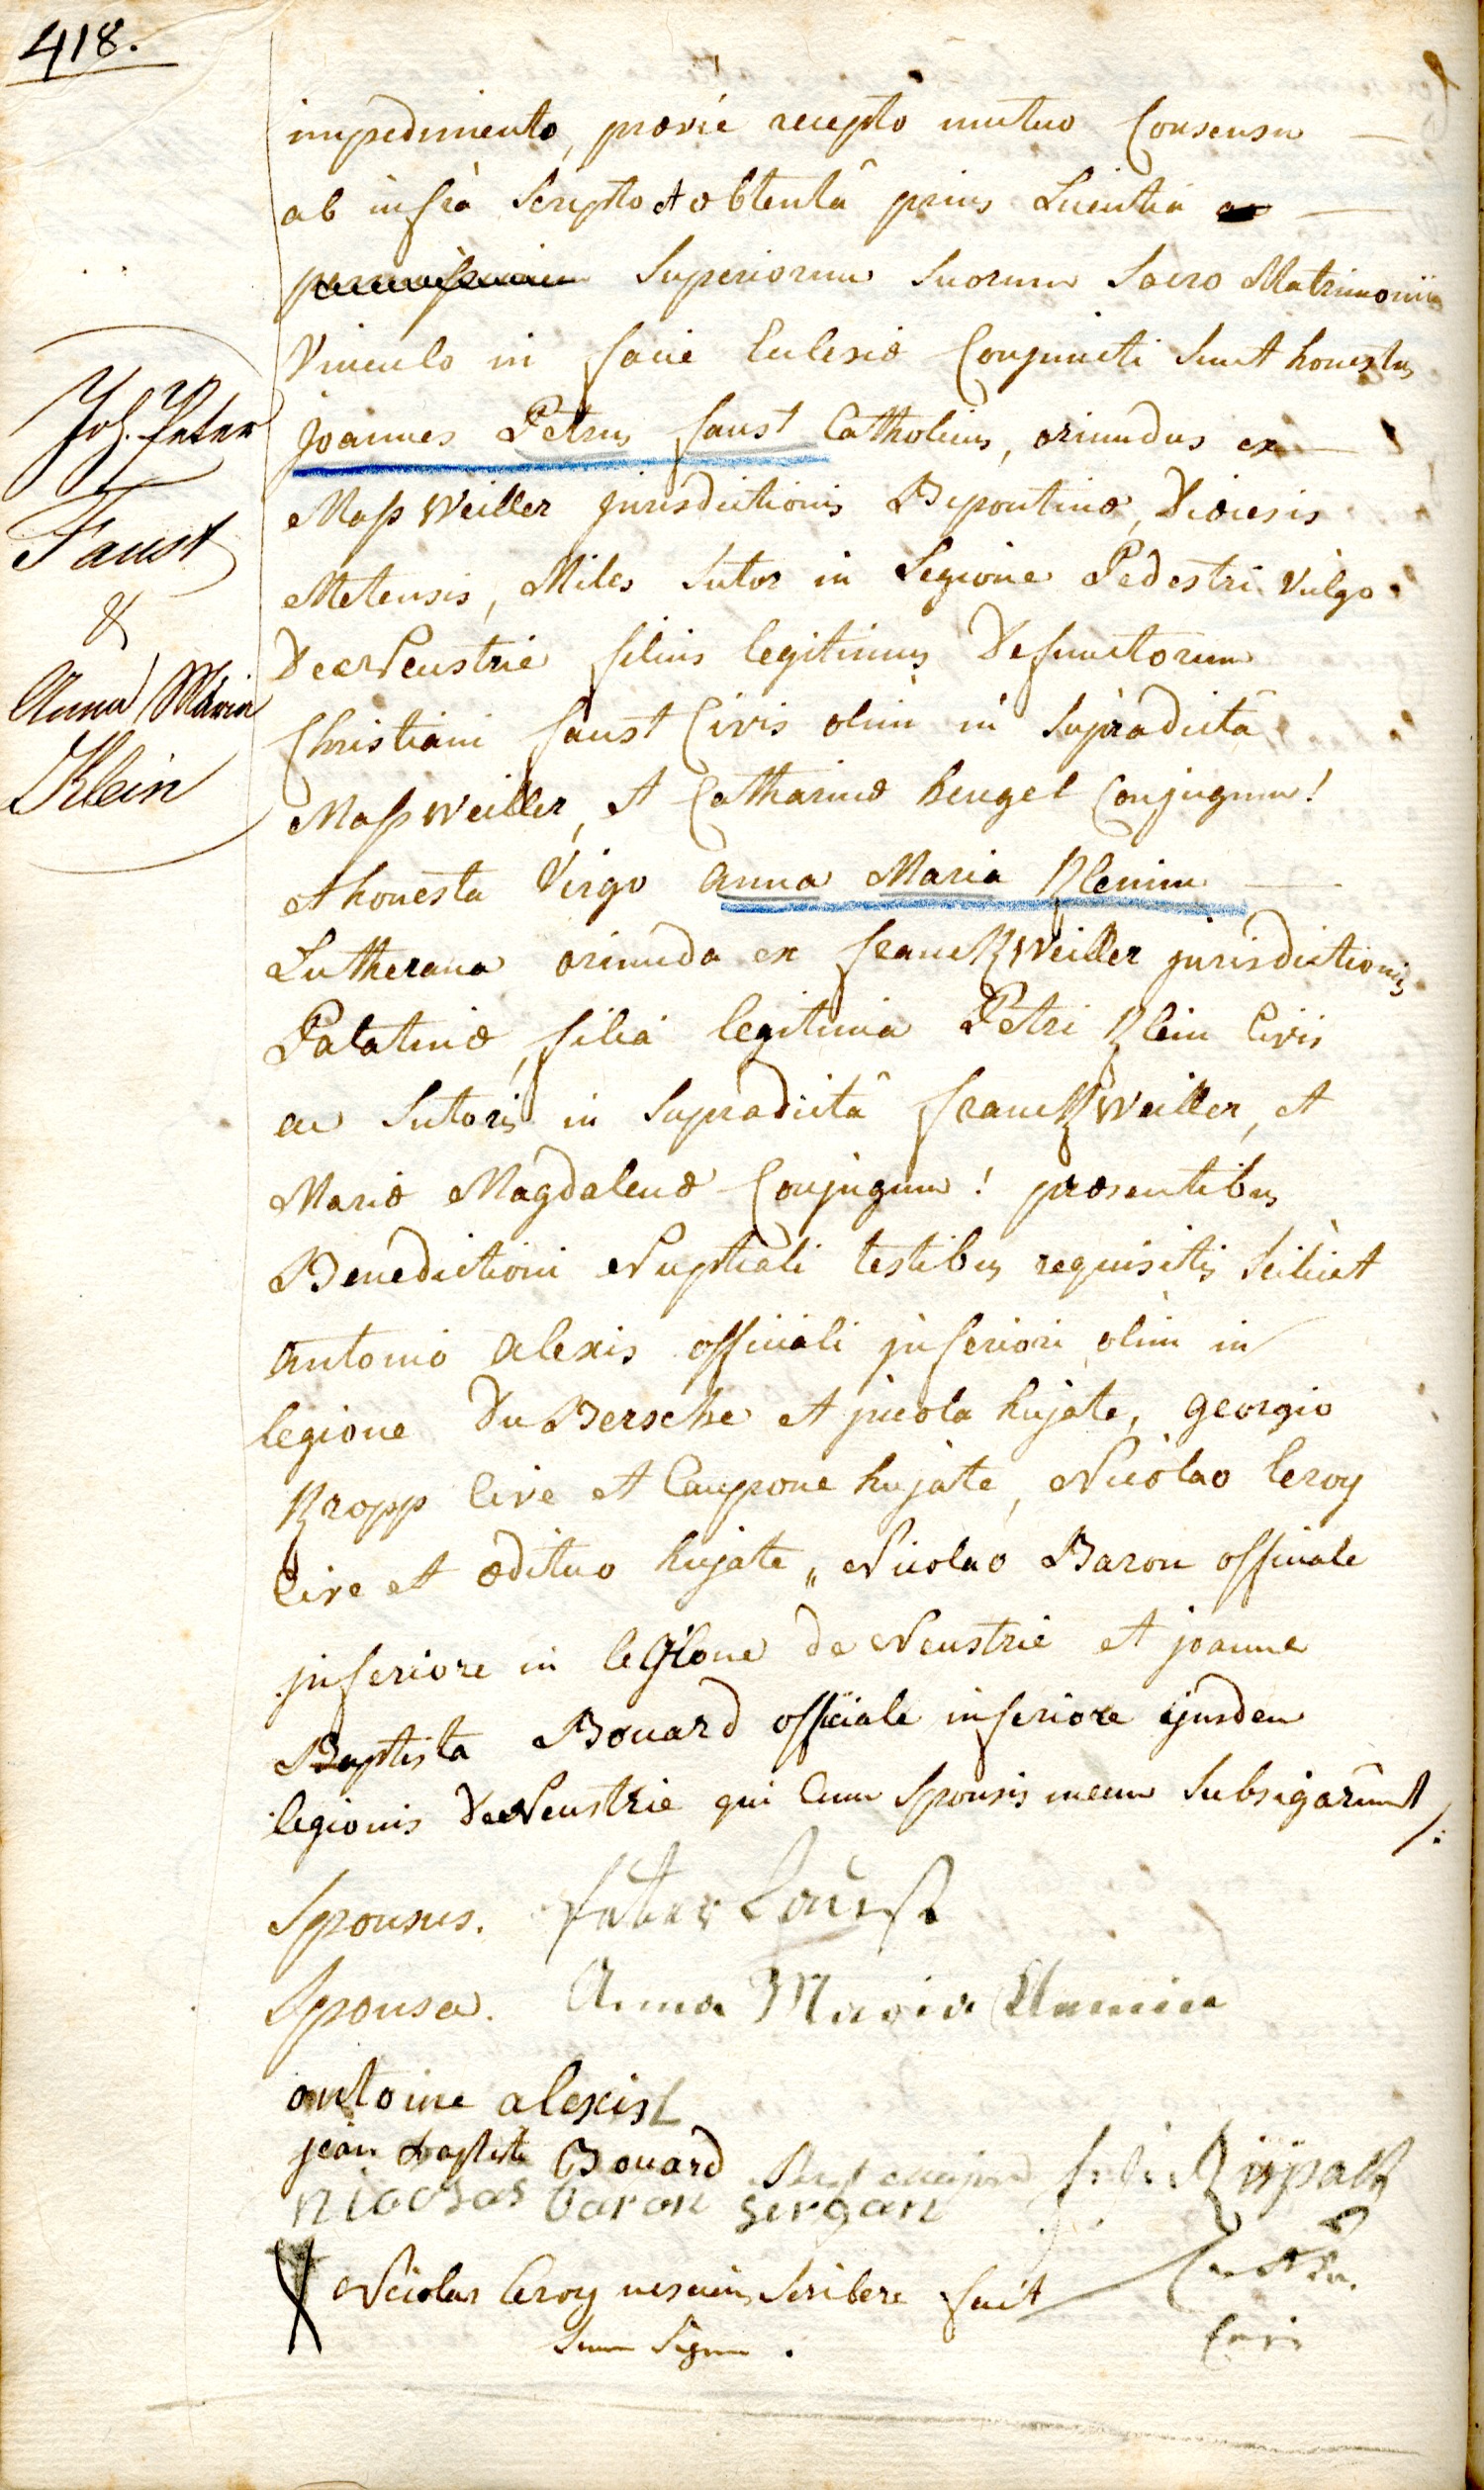 418.
impedimento, prævie recepto mutuo Consensu —
ab infrà Scripto et obtentâ prius Licentiâ —
Superiorum Suorum Sacro Matrimonii
Vinculo in facie Eclesiæ Conjuncti Sunt honestus
Joh. Peter
Faust
&
Anna Maria
Klein
Joannes Petrus faust Catholicus, oriundus ex —
Maßweiller jurisdictionis Bipontinæ, Diœcesis
Metensis, Miles Sutor in Legione Pedestri vulgo
De Neustrie filius legitimus Defunctorum
Christiani faust Civis olim in Supradictâ
Maßweiller, et Catharinæ Bengel Conjugum!
et honesta Virgo anna Maria Kleinin —
Lutherana oriunda ex franckweiller jurisdictionis
Palatinæ, filia legitima Petri Klein Civis
ac Sutoris in Supradictâ franckweiller, et
Mariæ Magdalenæ Conjugum! præsentibus
Benedictioni Nuptiali testibus requisitis Scilicet
antonio alexis officiali inferiori olim in
legione Du Bersche et incola hujate, georgio
Kropp Cive et Caupone hujate, Nicolao leroy
Cive et ædituo hujate,, Nicolao Baron officiale
inferiore in legione de Neustrie et joanne
Baptista Bouard officiale inferiore ejusdem
legionis De Neustrie qui Cum Sponsis mecum Subsigarunt /:
Sponsus. Peter Faust
Sponsa. Anna Maria Kleinin
antoine alexis
jean baptiste Bouard
nicolas baron serjan
Nicolas leroy nesciens Scribere fecit
Suum Signum.